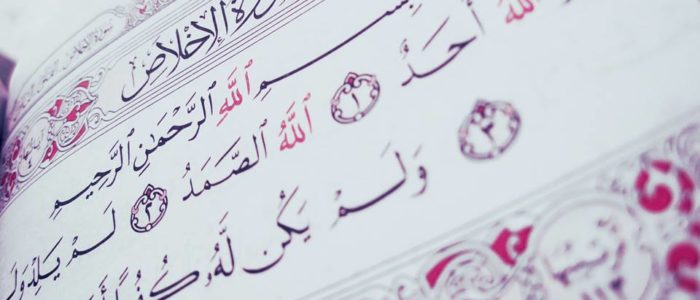 سورة الإخلاص
بِسْمِ ٱللَّهِ ٱلرَّحْمَٰنِ ٱلرَّحِيمِ
ٱللَّهُ أَحَدٌ ١ ٱللَّهُ ٱلصَّمَدُ ٢ لَمْ يَلِدْ وَلَ
وَلَمْ يَكُن لَّهُۥ كُفُوًا